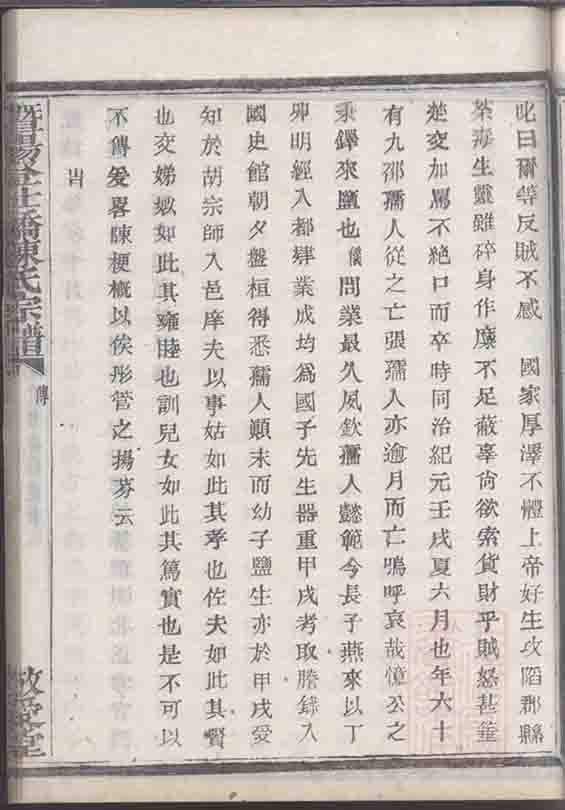 叱曰爾等反賊不感 國家厚澤不體上帝好生攻陷郡縣
荼毒生靈雖碎身作糜不足蔽辜尙欲索貨財乎賊怒甚箠
楚交加罵不絕口而卒時同治紀元壬戌夏六月也年六十
有九邵孺人從之亡張孺人亦逾月而亡嗚呼哀哉憶公之
秉鐸來鹽也儀問業最久夙欽孺人懿範今長子燕來以丁
卯明經入都肄業成均爲國子先生器重甲戌考取謄錄入
國史館朝夕盤桓得悉孺人顚末而幼子鹽生亦於甲戌受
知於胡宗師入邑庠夫以事姑如此其孝也佐夫如此其賢
也交娣姒如此其雍睦也訓兒女如此其篤實也是不可以
不傳爰畧陳梗概以俟彤管之揚芬云
暨陽 橋陳氏宗譜
傳
敬愛堂